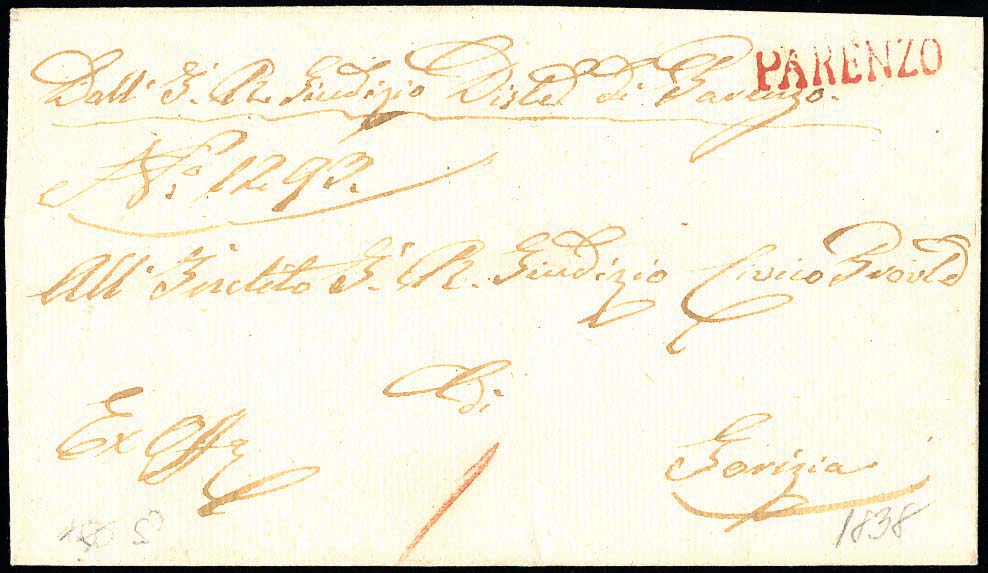 PARENZO
Dall' I. R. Giudizio Distl di Parenzo.
No. 1293.
All' Inclito I. R. Giudizio Civico Provle
di
Ex Offo
Gorizia
1838